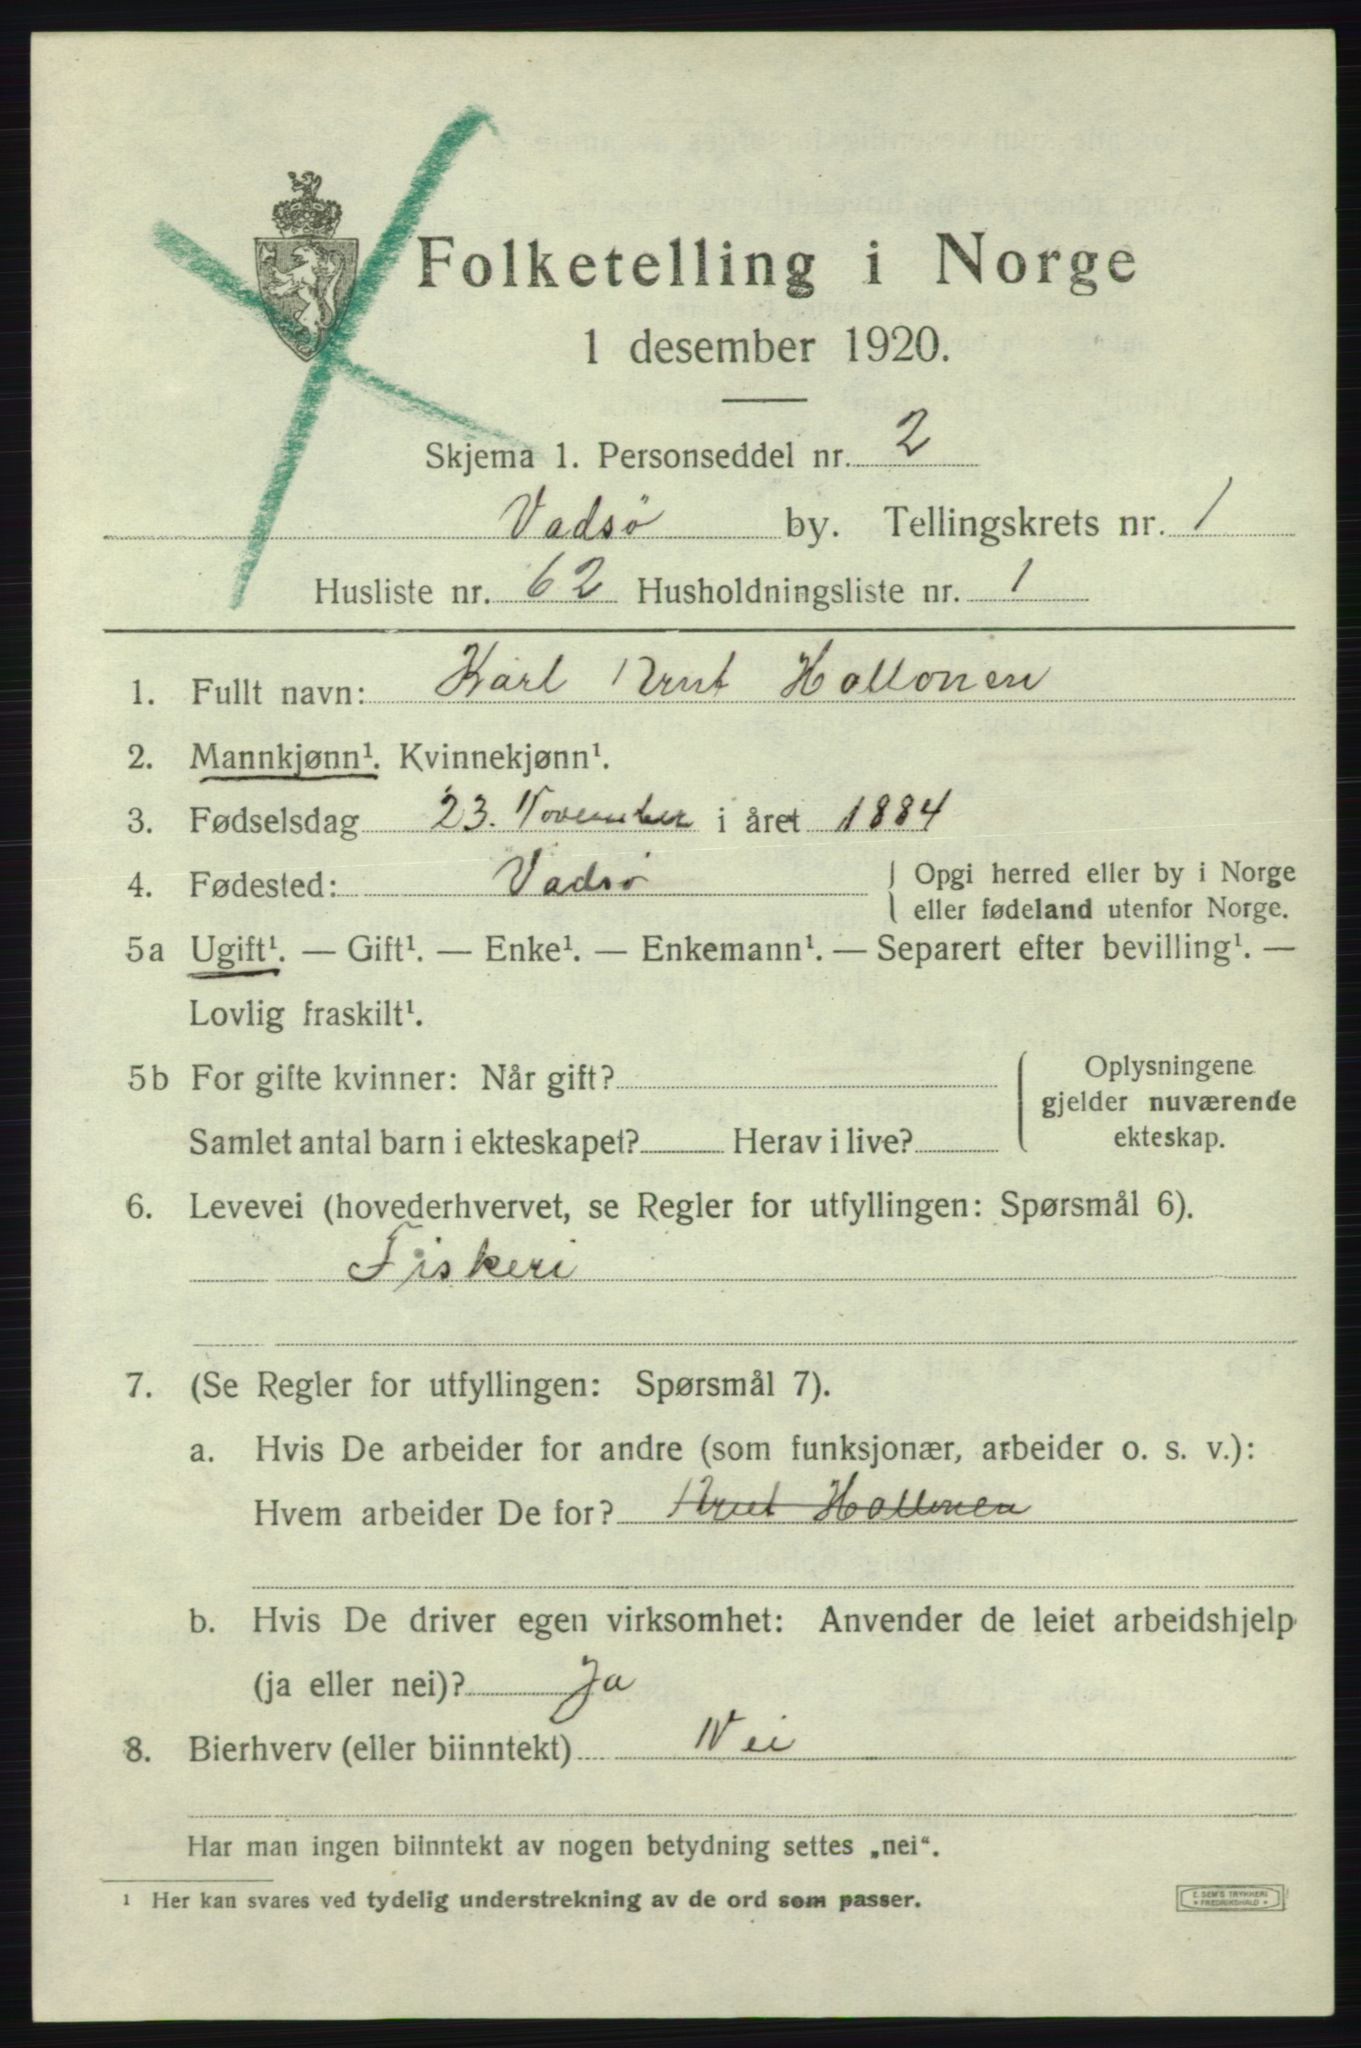 Folketelling i Norge
1 desember 1920.
Skjema 1. Personseddel nr. 2
Vadsö by. Tellingskrets nr. 1
Husliste nr. 62 Husholdningsliste nr. 1
1. Fullt navn: Karl Arnt Hallonen
2. Mannkjønn¹. Kvinnekjønn¹.
3. Fødselsdag 23. November i året 1884
4. Fødested: Vadsö { Opgi herred eller by i Norge
eller fødeland utenfor Norge.
5a Ugift¹. — Gift¹. — Enke¹. — Enkemann¹. — Separert efter bevilling¹. —
Lovlig fraskilt¹.
5b For gifte kvinner: Når gift? { Oplysningene
gjelder nuværende
Samlet antal barn i ekteskapet? Herav i live? ekteskap.
6. Levevei (hovederhvervet, se Regler for utfyllingen: Spørsmål 6).
Fiskeri
7. (Se Regler for utfyllingen: Spørsmål 7).
a. Hvis De arbeider for andre (som funksjonær, arbeider o. s. v.):
Hvem arbeider De for? Arnt Hallonen
b. Hvis De driver egen virksomhet: Anvender de leiet arbeidshjelp
(ja eller nei)? Ja
8. Bierhverv (eller biinntekt) Nei
Har man ingen biinntekt av nogen betydning settes „nei“.
¹ Her kan svares ved tydelig understrekning av de ord som passer.
E. SEM'S TRYKKERI
• FREDRIKSHALD •